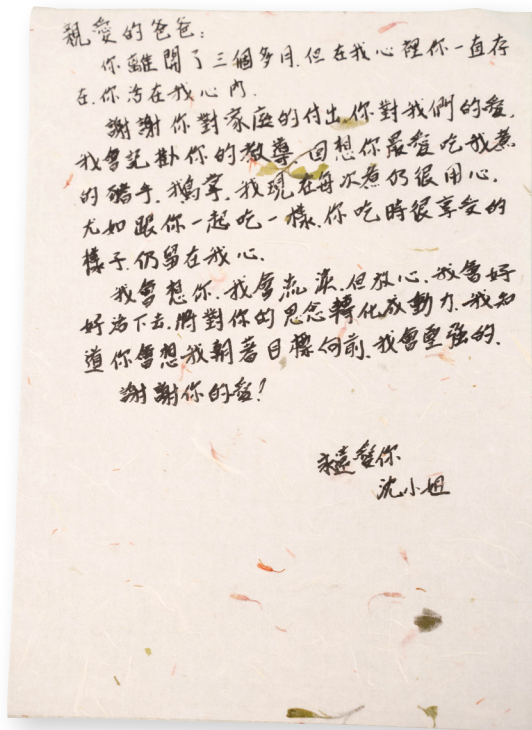 親愛的爸爸：
你離開了三個多月.但在我心裡你一直存
在.你活在我心內.
謝謝你對家庭的付出.你對我們的愛.
我會記掛你的教導.回想你最愛吃我煮
的豬手.鵝掌.我現在每次煮仍很用心.
尤如跟你一起吃一樣.你吃時很享受的
樣子.仍留在我心.
我會想你.我會流淚.但放心.我會好
好活下去.將對你的思念轉化成動力.我知
道你會想我朝著目標向前.我會堅強的.
謝謝你的愛！
永遠愛你
沈小姐